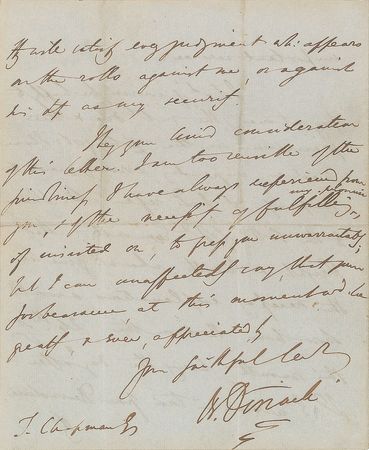 they will satisfy every judgment wh: appears
on the rolls against me, or against
as my security.
I beg your kind consideration
of this letter. I am too sensible of the
kindness I have always experienced from
you, & of the necessity of fulfilling,
my engagements
if insisted on, to press you unwarrantably;
but I can unaffectedly say, that your
forbearance at this moment wd. be
greatly & sincerely appreciated by
Your faithful Servt
B. Disraeli
T. Chapman Esq